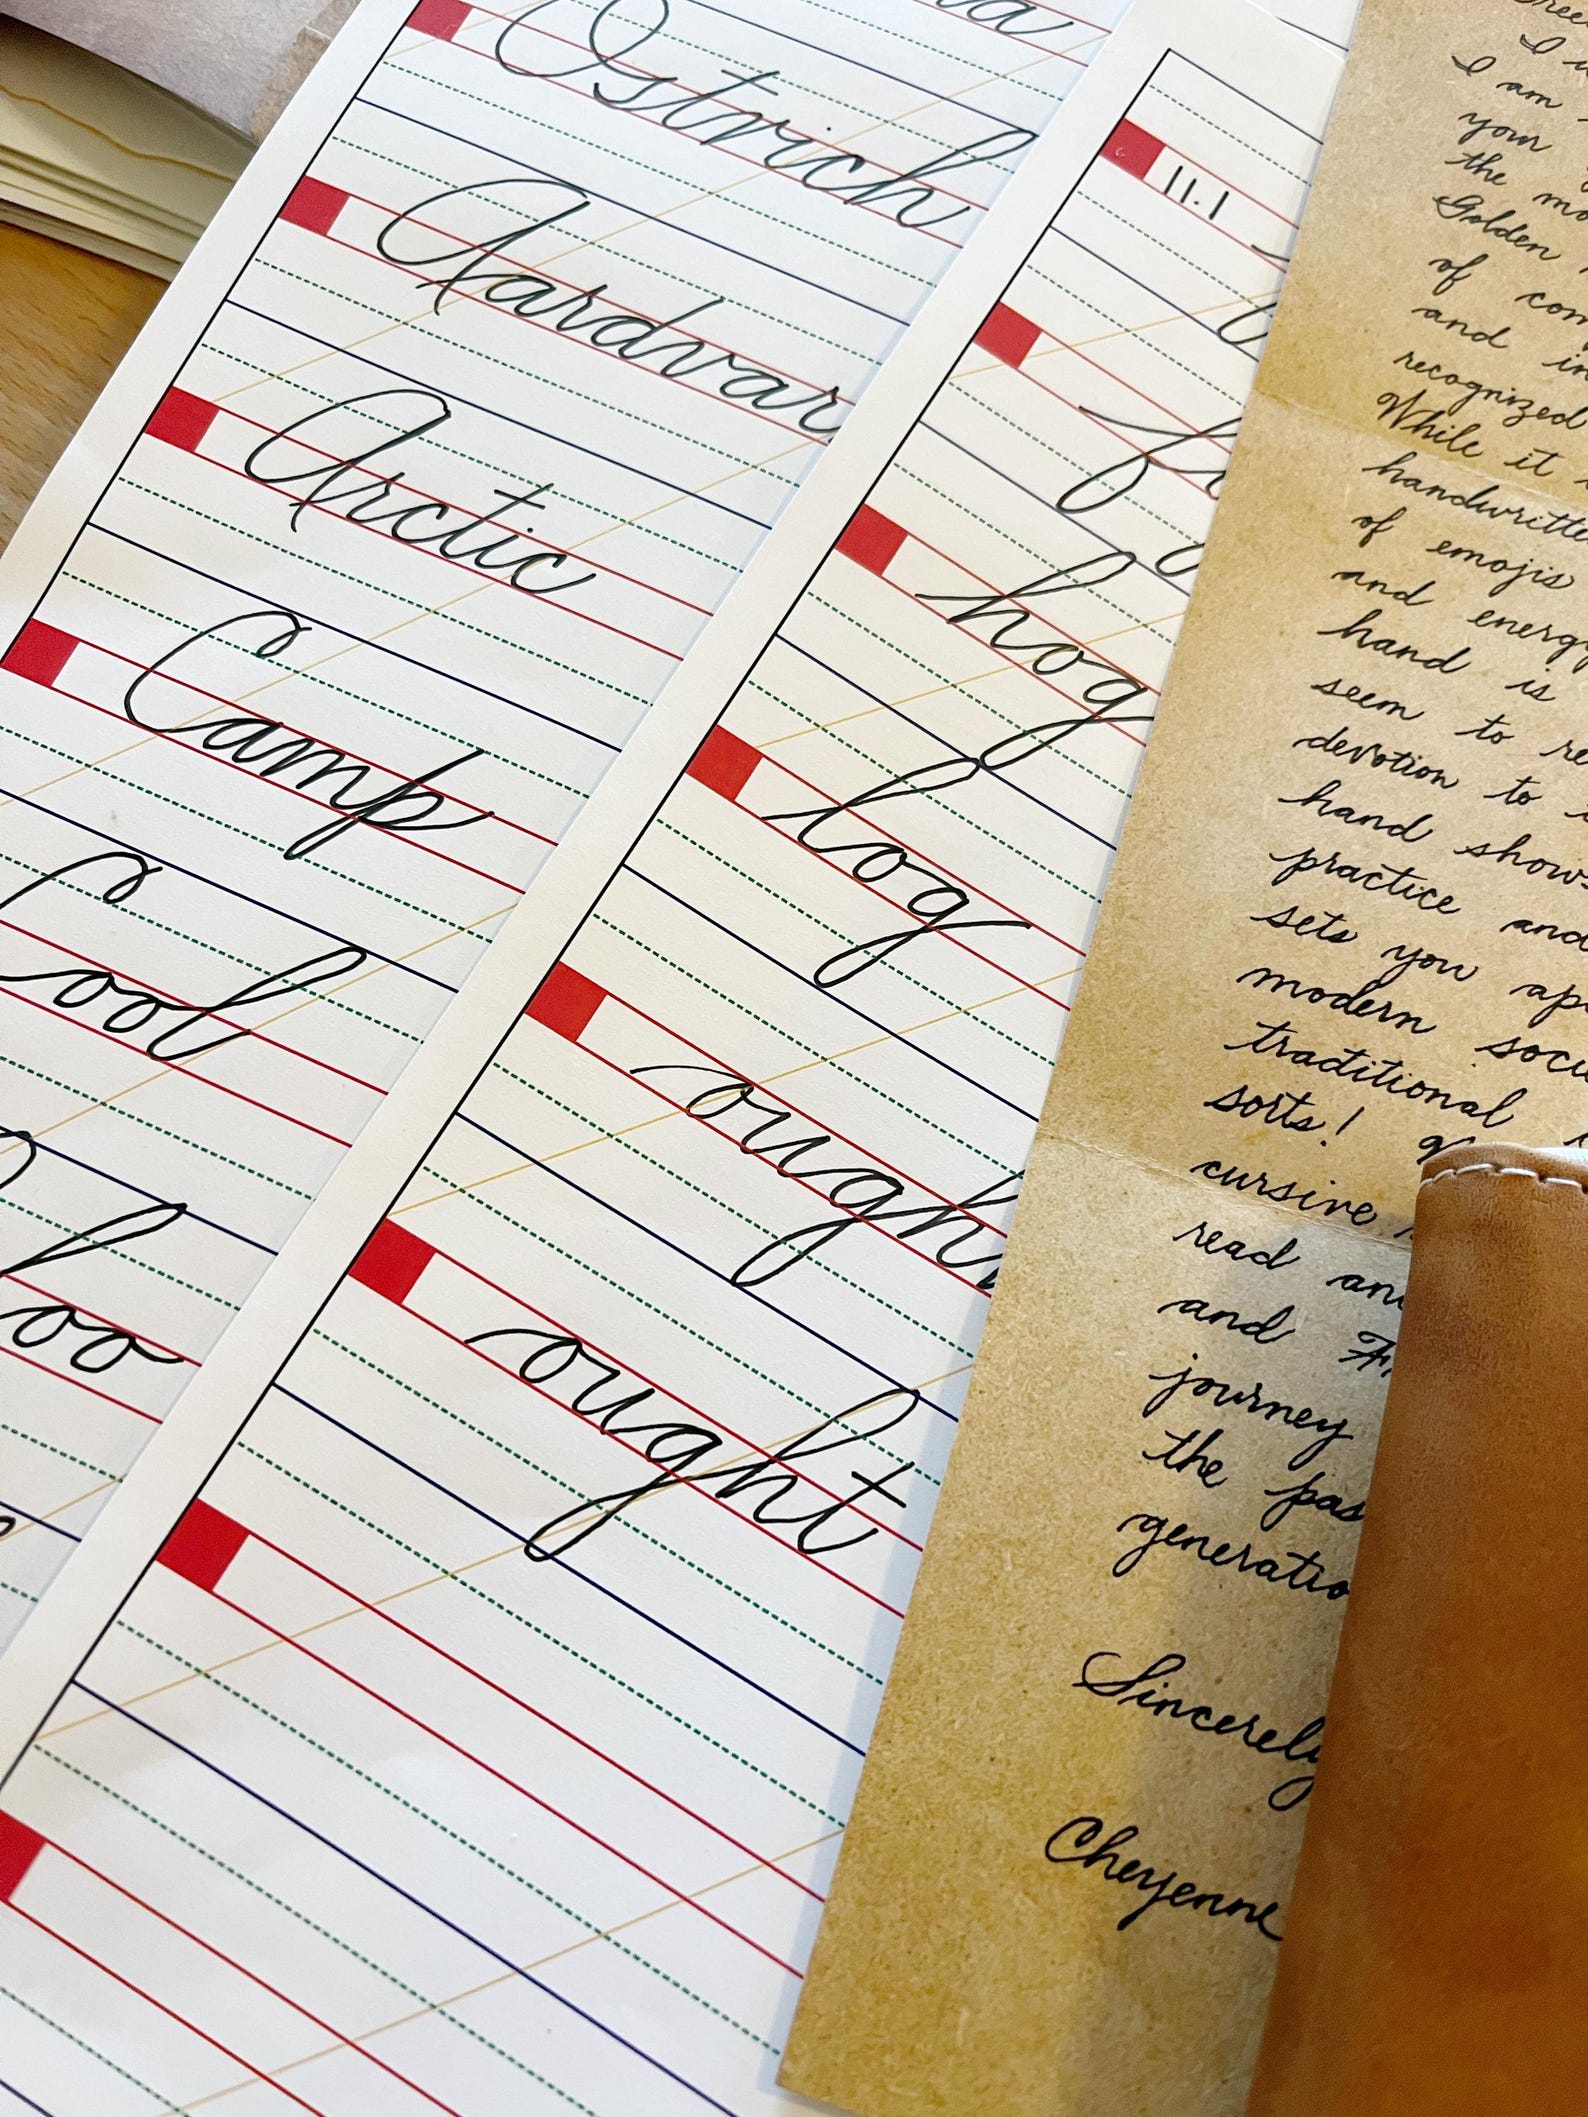 Ostrich
Aardvar
Arctic
Camp
Cool
oo
11.1
hog
log
ough
ought
I am
your
the mo
Golden
of com
and in
recognized
While it
handwritte
of emojis
and energy
hand is
seem to re
devotion to
hand shows
practice and
sets you apa
modern soci
traditional
sorts!
cursive
read an
and
journey
the pas
generatio
Sincerely
Cheyenne